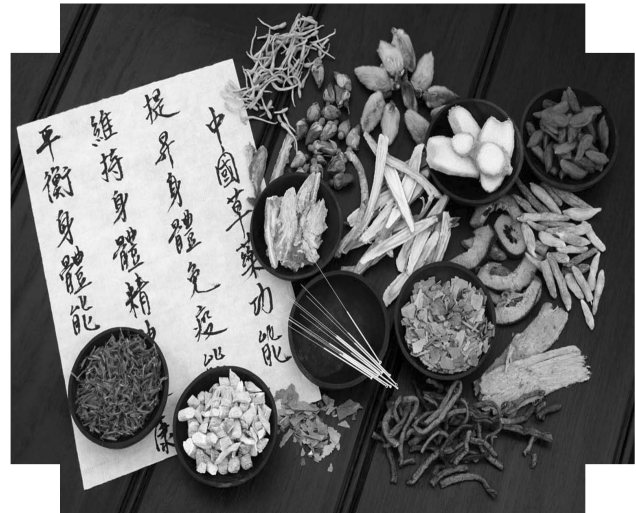 中國草藥功能
提昇身體免疫能
維持身體精康
平衡身體能